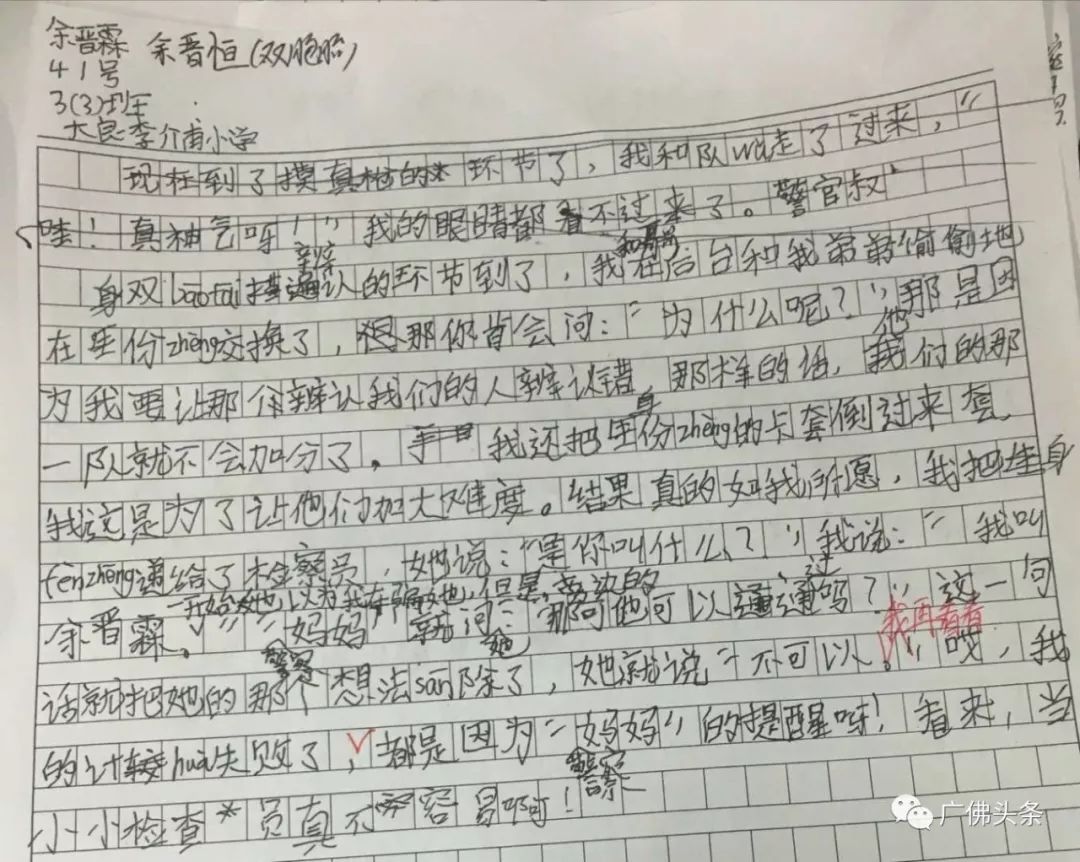 余晋霖 余晋恒(双胞胎)
41号
3(3)班
大良李介甫小学
现在到了摸真枪的环节了，我和队wu走了过来，“
哇！真神气呀！”我的眼睛都看不过来了。警官叔
身双bao tai 辨认的环节到了，我和哥哥在后台和我弟弟偷偷地
在身份zhèng交换了，那你肯会问：“为什么呢？”那是因
为我要让那个辨认我们的人辨认错，那样的话，他我们的那
一队就不会加分了。我还把身份zhèng的卡套倒过来套
我这是为了让他们加大难度。结果真的如我所愿，我把身
fènzhèng递给了检察员，她说：“是你叫什么？”我说：“我叫
余晋霖。”一开始她以为我在骗她，但是，旁边的
“妈妈”就问：“那问他可以通过吗？”这一句
话就把她的那个想法sān除了，她就说“不可以。我再看看”哎，我
的计huà失败了，都是因为“妈妈”的提醒呀！看来，当
小小检查员真不容易啊！
警察
广佛头条